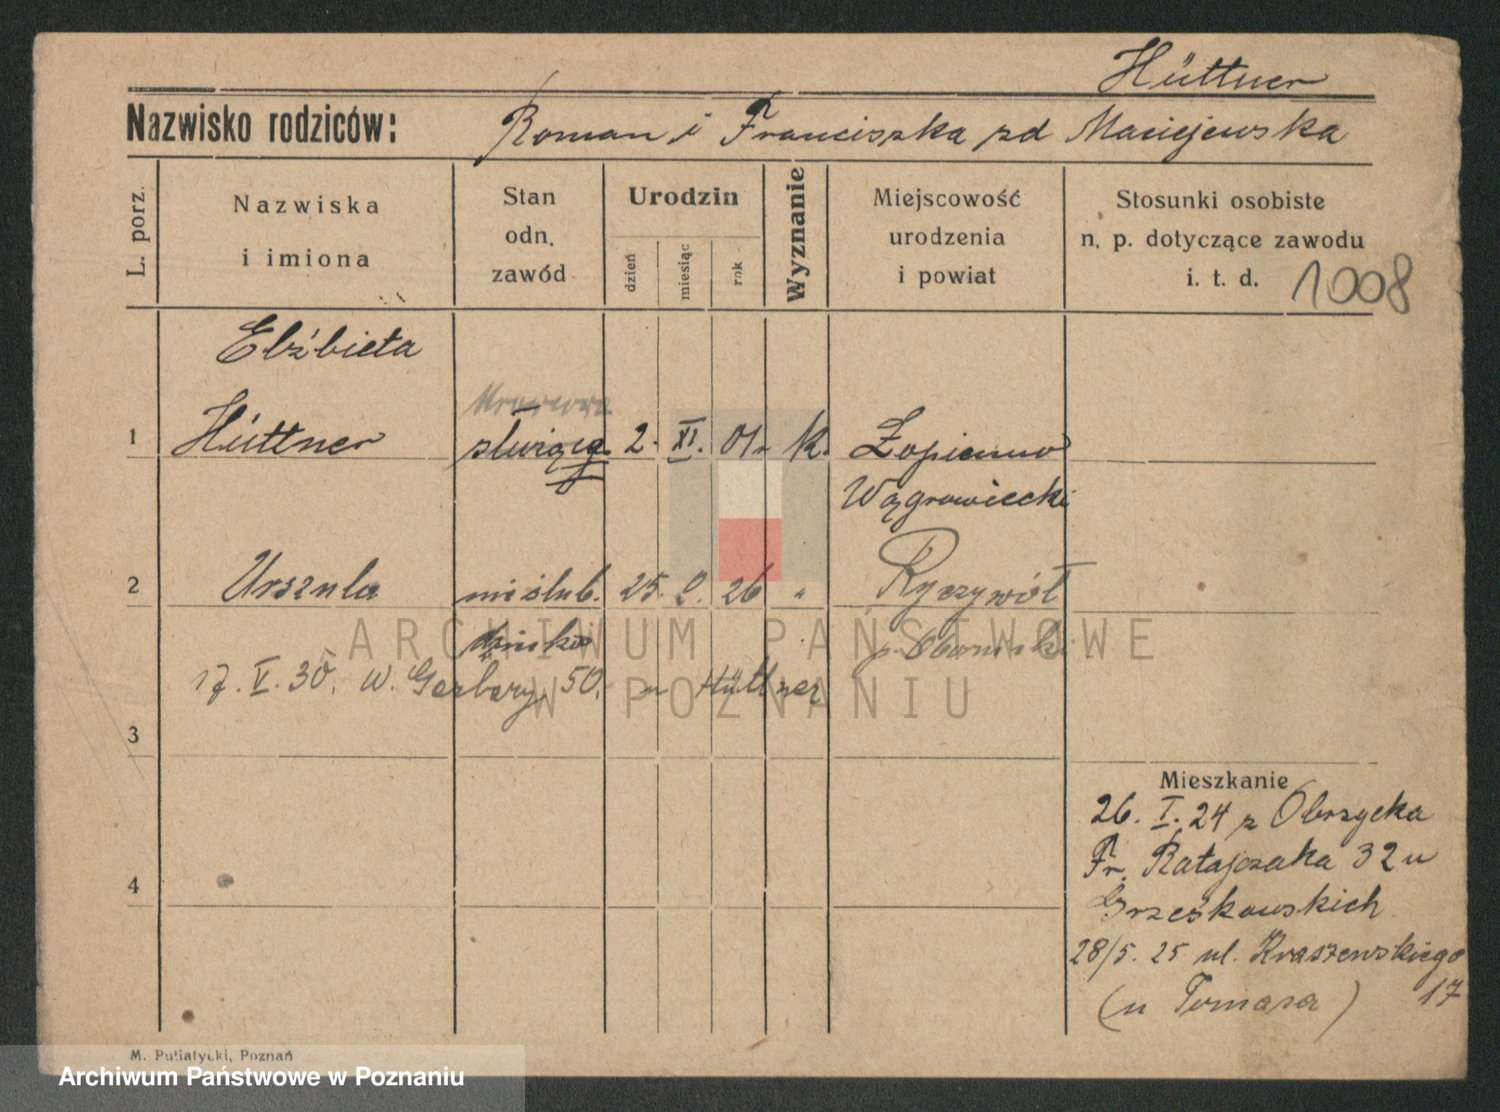 Hüttner
Nazwisko rodziców: Roman i Franciszka zd Maciejewska
L. porz. Nazwiska i imiona Stan odn. zawód Urodzin dzień miesiąc rok Wyznanie Miejscowość urodzenia i powiat Stosunki osobiste n. p. dotyczące zawodu i. t. d. 1008
Elżbieta
1 Hüttner służąca 2. XI. 01 k. Łopienno
Wągrowiecki
2 Urszula nieślub. 25. 26 " Ryczywół
dziecko p. Obornicki
17. V. 30. W. Garbary 50. u Hüttner
3
Mieszkanie
26. I. 24 z Obrzycka
Fr. Ratajczaka 32 u
4
Grześkowskich
28/5. 25 ul. Kraszewskiego
17
(u Tomasa)
M. Putiatycki, Poznań
ARCHIWUM PAŃSTWOWE
W POZNANIU
Archiwum Państwowe w Poznaniu